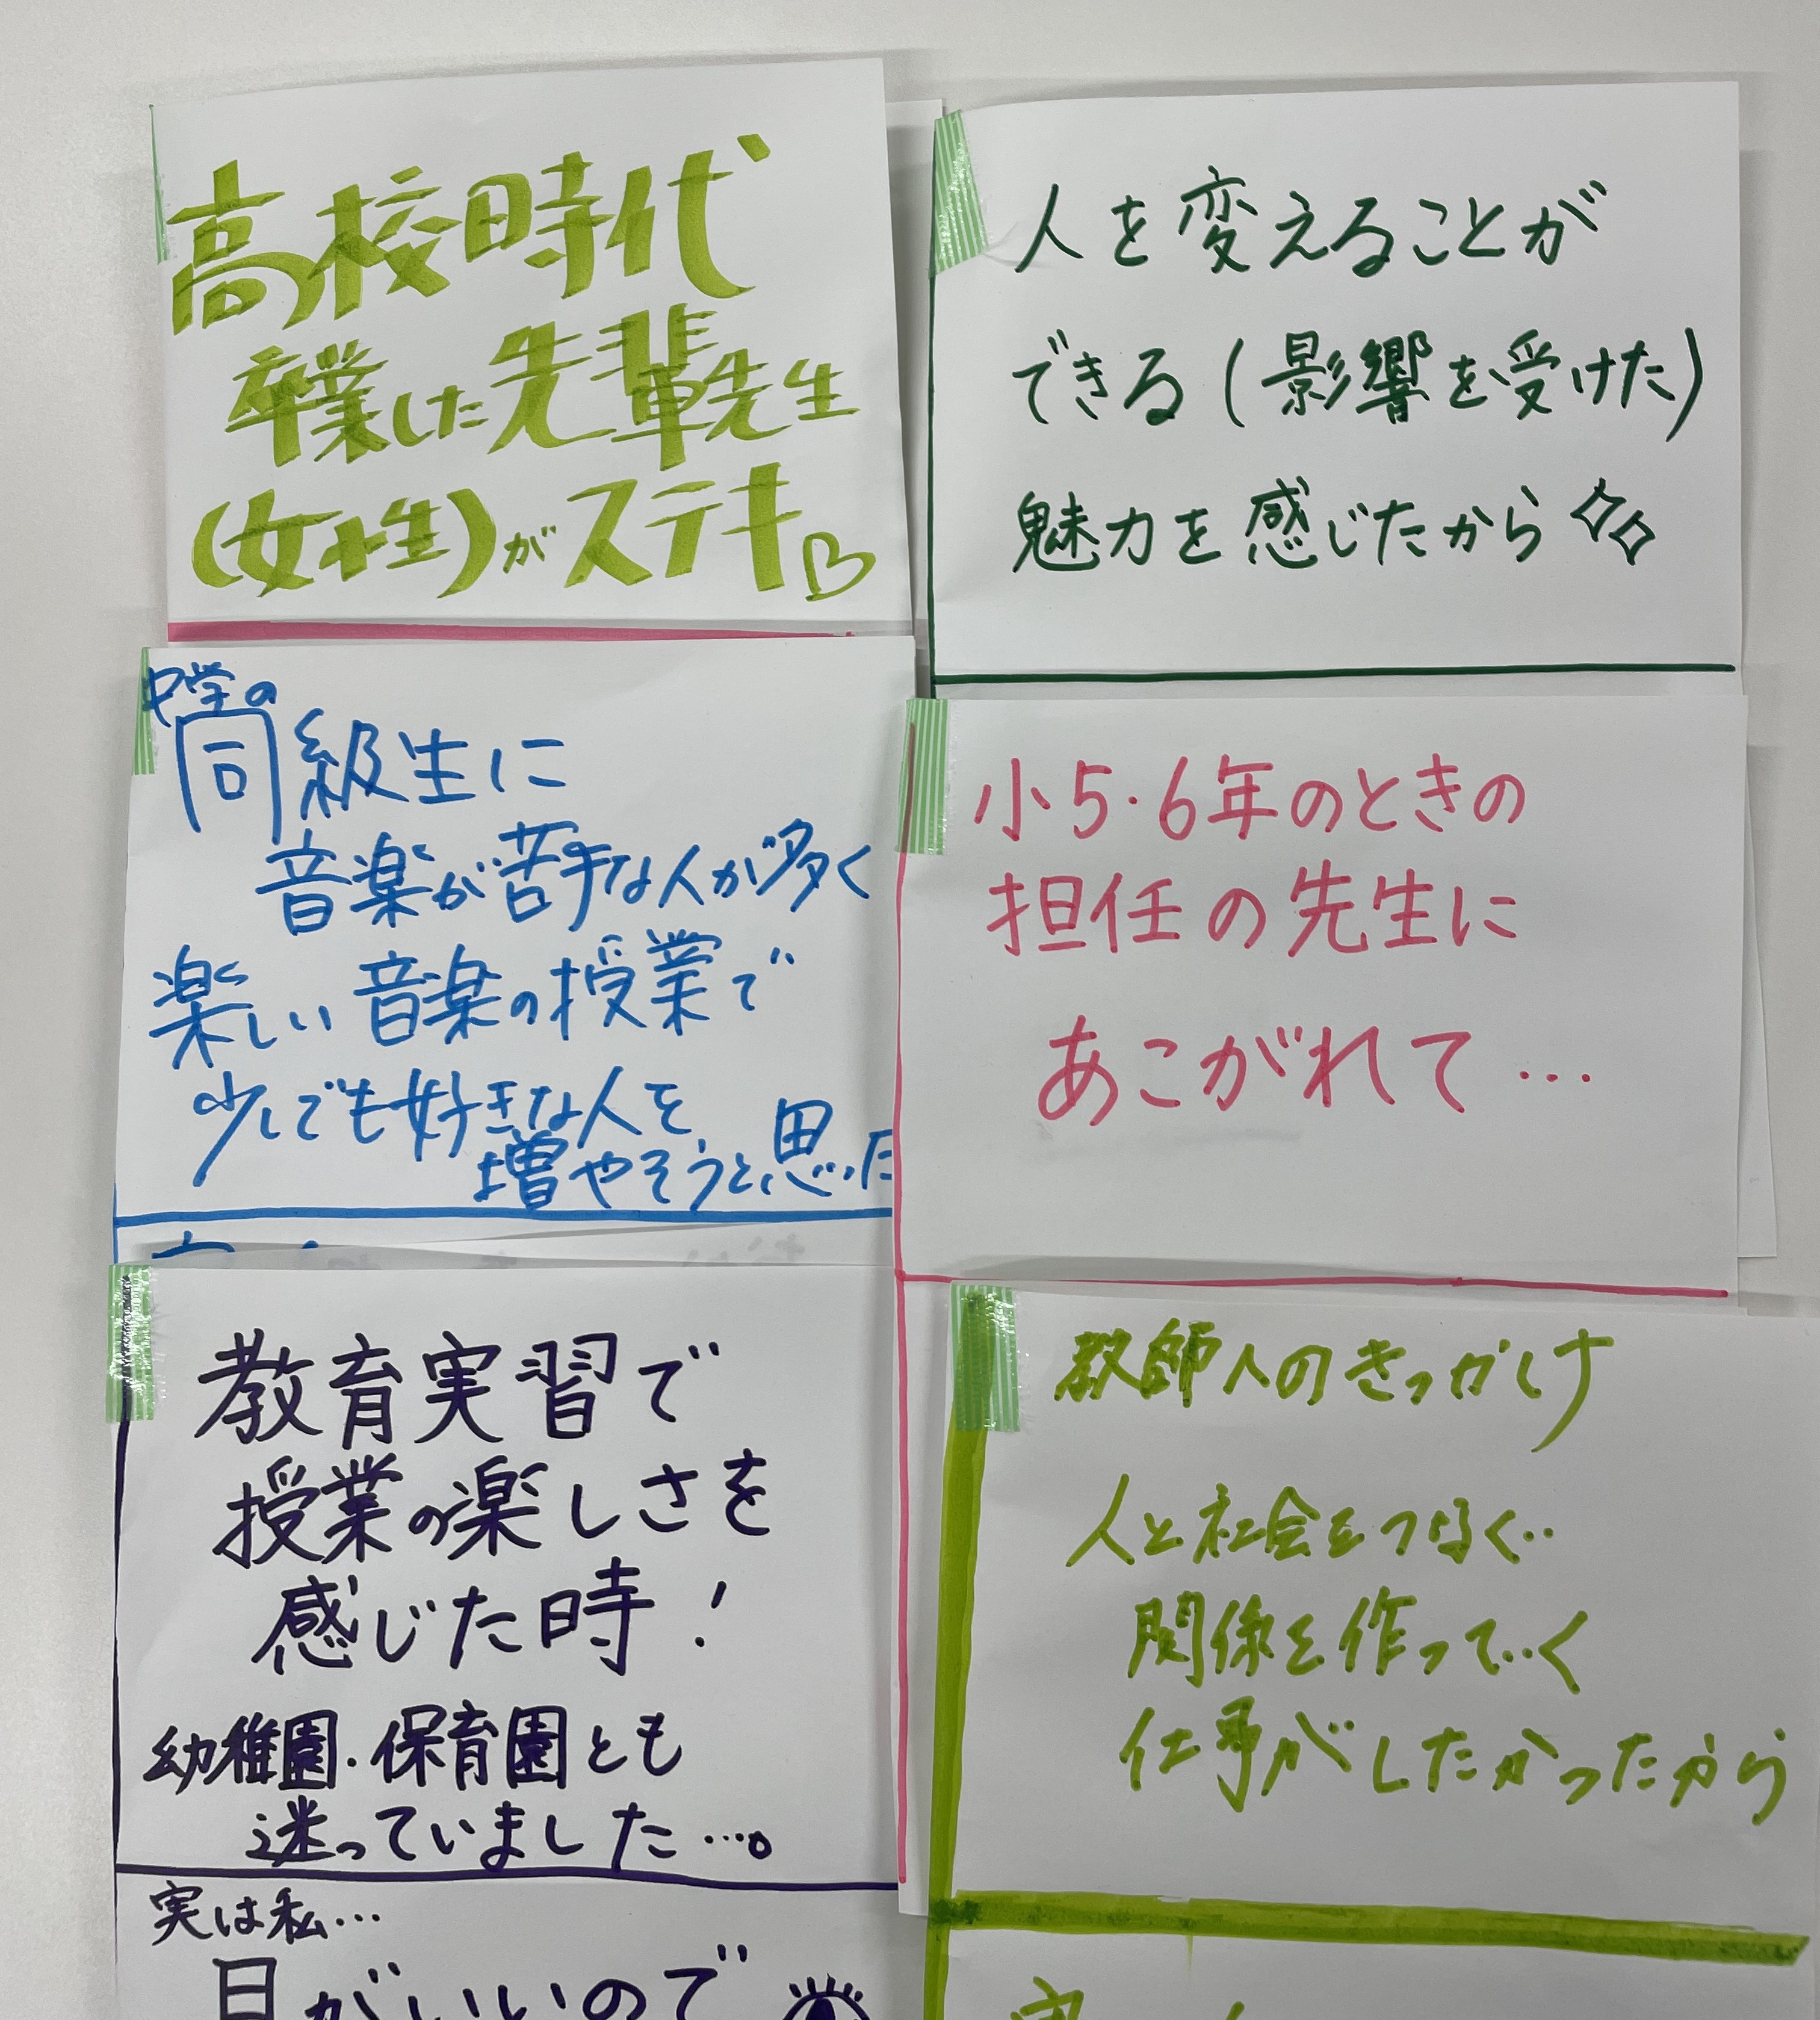 高校時代
卒業した先輩先生
(女性)がステキ♡
人を変えることが
できる(影響を受けた)
魅力を感じたから
中学の
同級生に
音楽が苦手な人が多く
楽しい音楽の授業で
少しでも好きな人を
増やそうと思った
小5・6年のときの
担任の先生に
あこがれて…
教育実習で
授業の楽しさを
感じた時!
幼稚園・保育園とも
迷っていました…。
実は私…
目がいいので
教師人のきっかけ
人と社会をつなぐ..
関係を作っていく
仕事がしたかったから